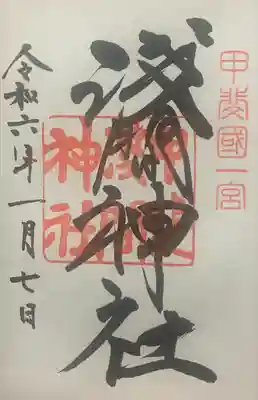 甲斐國一宮
淺間神社
淺間神社
令和六年一月七日